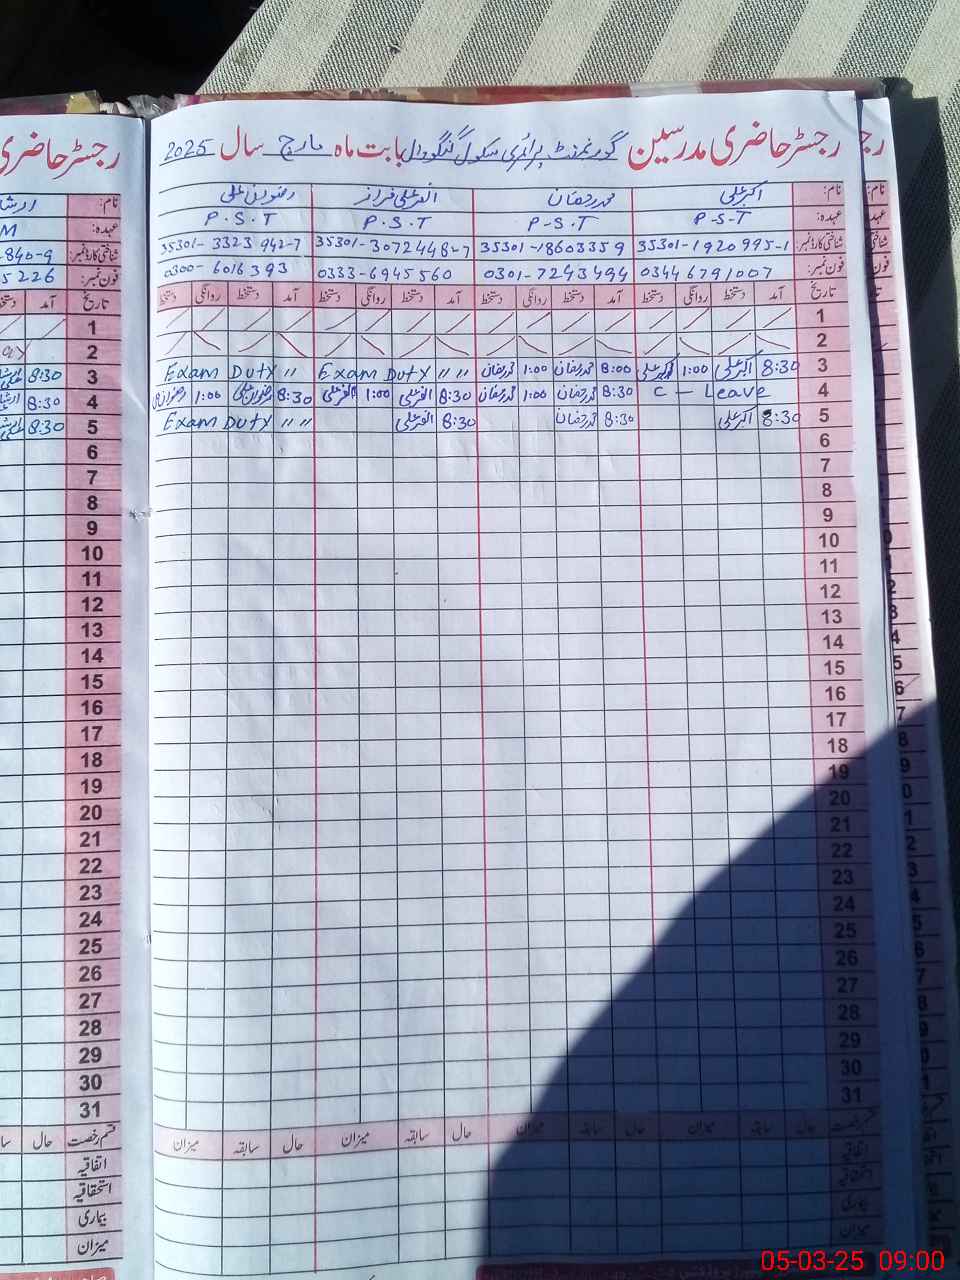 رجسٹر حاضری مدرسین گورنمنٹ پرائمری سکول بابت ماہ مارچ سال 2025
نام: اکبر علی محمد رمضان اظفر علی فراز رضوان علی
عہدہ: P-S-T P-S-T P.S.T P.S.T
شناختی کارڈ نمبر: 35301-1920995-1 35301-18603359 35301-3072448-7 35301-3323942-7
فون نمبر: 03446791007 0301-7243494 0333-6945560 0300-6016393
تاریخ آمد دستخط روانگی دستخط آمد دستخط روانگی دستخط آمد دستخط روانگی دستخط آمد دستخط روانگی دستخط
1
2
3 8:30 اکبر علی 1:00 اکبر علی 8:00 محمد رمضان 1:00 محمد رمضان Exam Duty " " Exam Duty " "
4 C - Leave 8:30 محمد رمضان 1:00 محمد رمضان 8:30 اظفر علی 1:00 اظفر علی 8:30 رضوان علی 1:00 رضوان علی
5 8:30 اکبر علی 8:30 محمد رمضان 8:30 اظفر علی Exam Duty " "
6
7
8
9
10
11
12
13
14
15
16
17
18
19
20
21
22
23
24
25
26
27
28
29
30
31
قسم رخصت حال سابقہ میزان حال سابقہ میزان حال سابقہ میزان حال سابقہ میزان
اتفاقیہ
استحقاقیہ
بیماری
میزان
رجسٹر حاضری
نام:
عہدہ: M
شناختی کارڈ نمبر: 840-9
فون نمبر: 5226
تاریخ آمد دستخط
1
2
3 8:30
4 8:30
5 8:30
6
7
8
9
10
11
12
13
14
15
16
17
18
19
20
21
22
23
24
25
26
27
28
29
30
31
قسم رخصت حال
اتفاقیہ
استحقاقیہ
بیماری
میزان
05-03-25 09:00